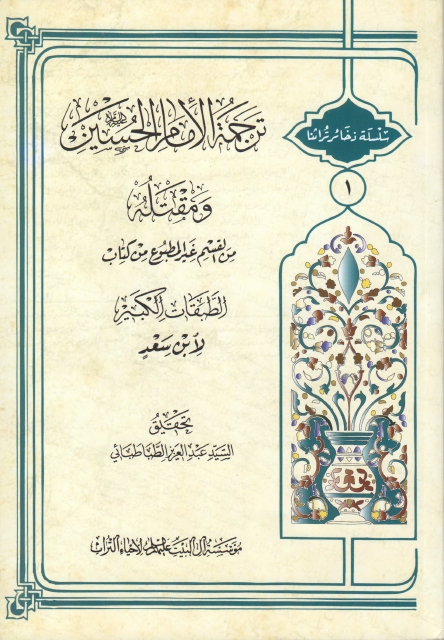 سلسلة ذخائر تراثنا
١
ترجمة الإمام الحسين عليه السلام
ومقتله
من القسم غير المطبوع من كتاب
الطبقات الكبير
لابن سعد
تحقيق
السيد عبد العزيز الطباطبائي
مؤسسة آل البيت عليهم السلام لإحياء التراث